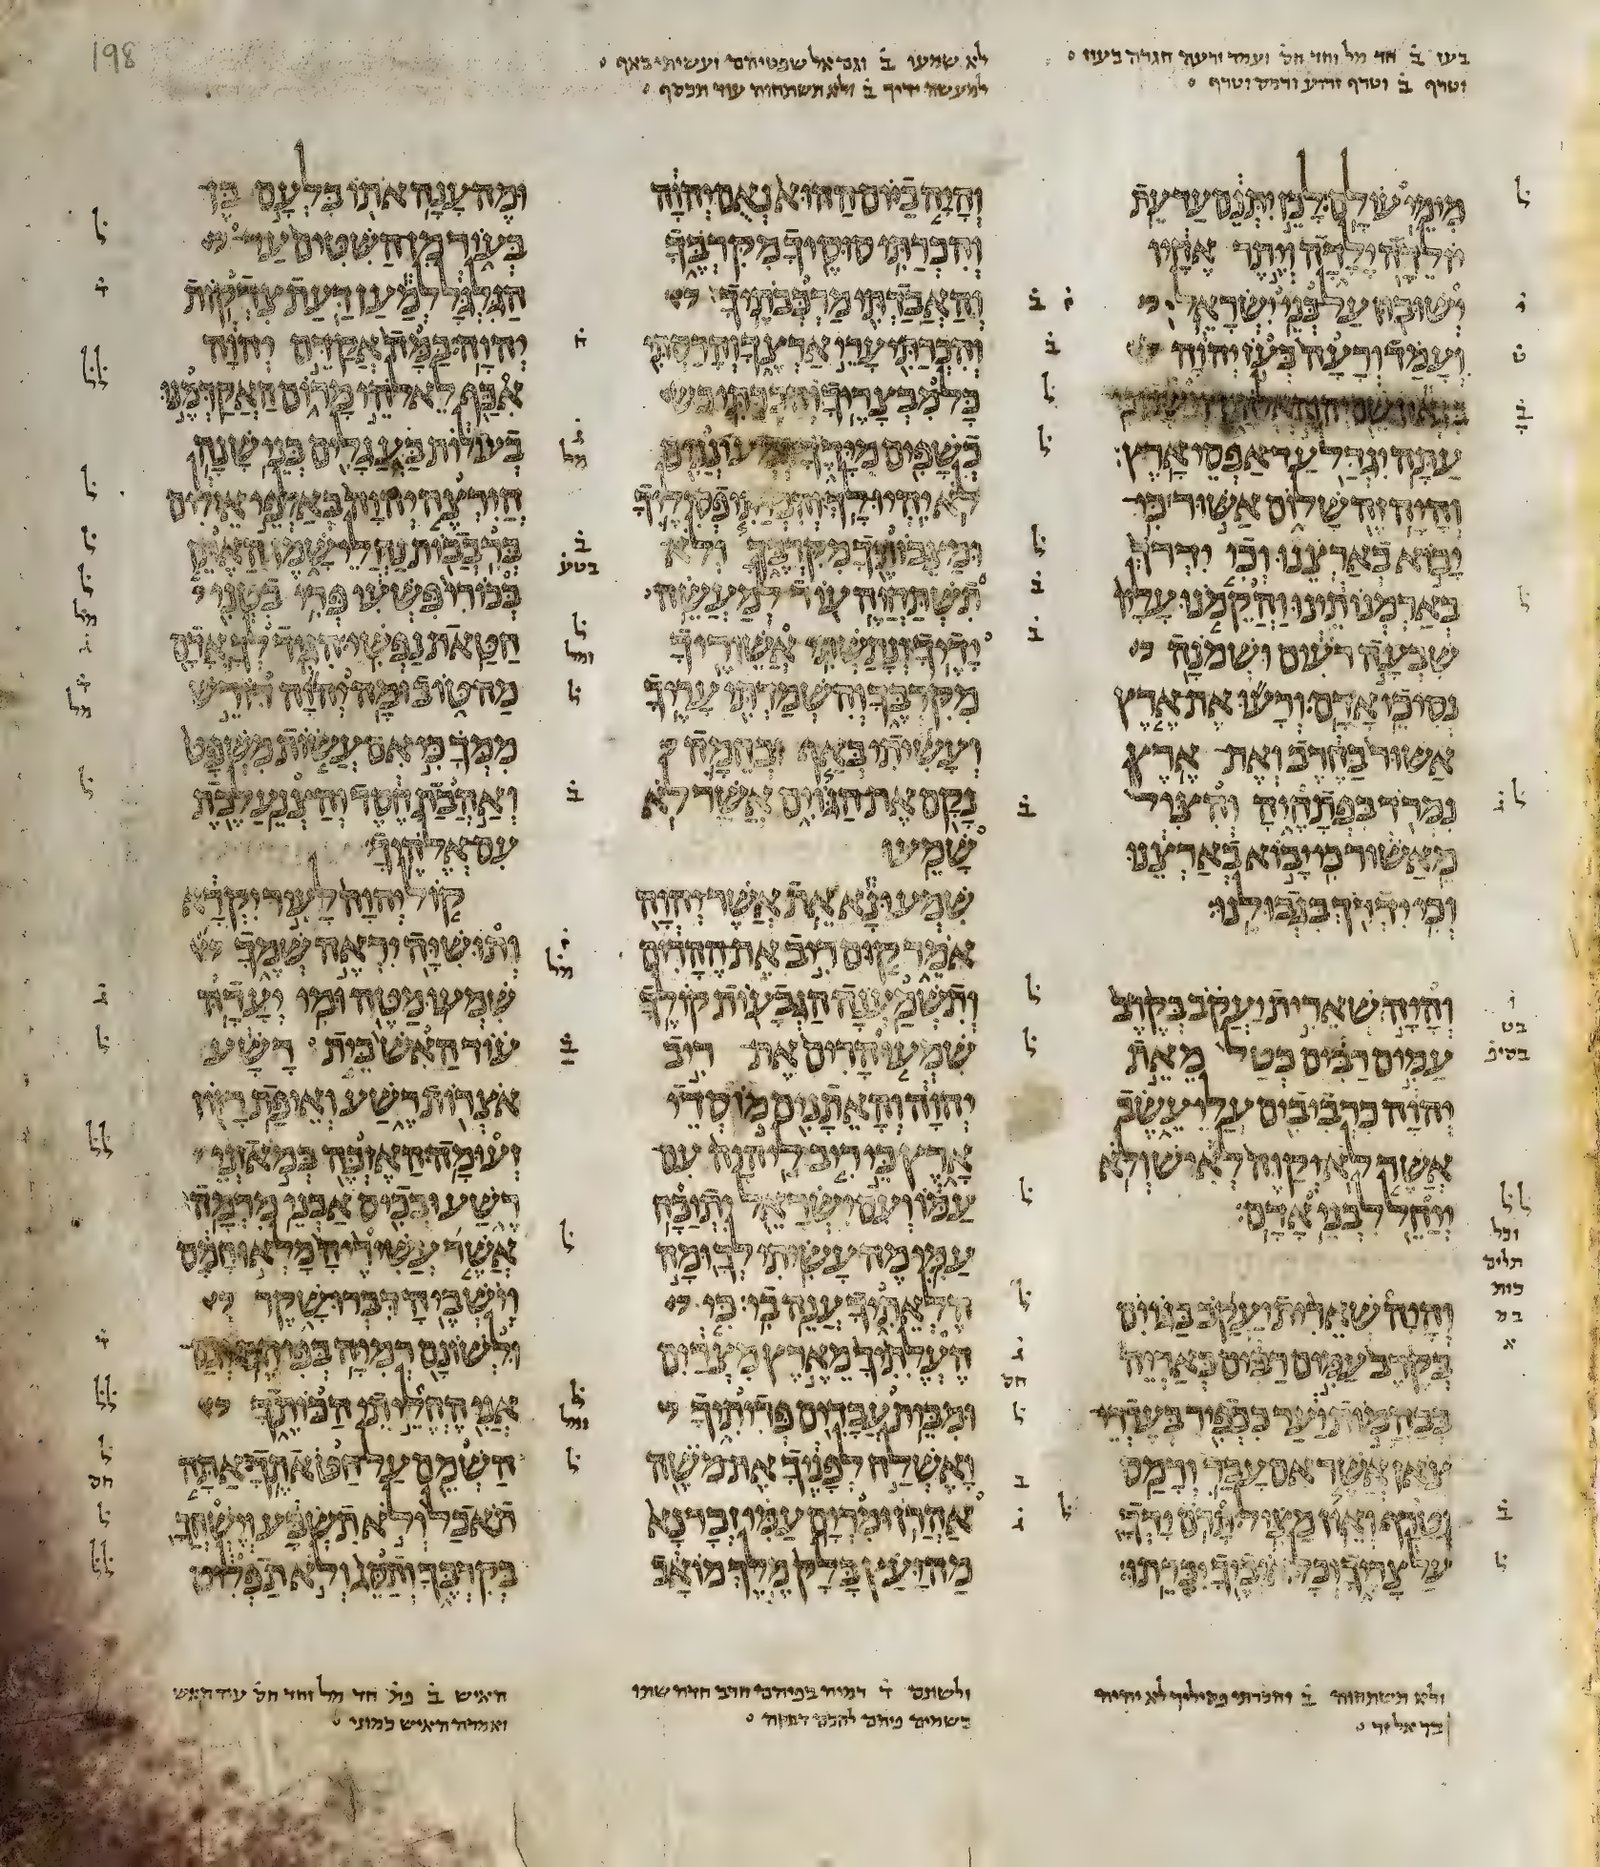 בעז ב חד מל וחד חס ועמד ורעה חגרה בעוז
וטרף ב וטרף זרוע ורמס וטרף
לא שמעו ב וגם אל שפטיהם ועשיתי באף
למעשה ידיך ב ולא תשתחוה עוד תכסף
198
מימי עולם לכן יתנם עד עת
יולדה ילדה ויתר אחיו
ישובון על בני ישראל
ועמד ורעה בעז יהוה
בגאון שם יהוה אלהיו וישבו כי
עתה יגדל עד אפסי ארץ
והיה זה שלום אשור כי
יבוא בארצנו וכי ידרך
בארמנתינו והקמנו עליו
שבעה רעים ושמנה
נסיכי אדם ורעו את ארץ
אשור בחרב ואת ארץ
נמרד בפתחיה והציל
מאשור כי יבוא בארצנו
וכי ידרך בגבולנו
והיה שארית יעקב בקרב
עמים רבים כטל מאת
יהוה כרביבים עלי עשב
אשר לא יקוה לאיש ולא
ייחל לבני אדם
והיה שארית יעקב בגוים
בקרב עמים רבים כאריה
בבהמות יער ככפיר בעדרי
צאן אשר אם עבר ורמס
וטרף ואין מציל תרם ידך
על צריך וכל איביך יכרתו
והיה ביום ההוא נאם יהוה
והכרתי סוסיך מקרבך
והאבדתי מרכבתיך
והכרתי ערי ארצך והרסתי
כל מבצריך והכרתי
כשפים מידך ומעוננים
לא יהיו לך והכרתי פסיליך
ומצבותיך מקרבך ולא
תשתחוה עוד למעשה
ידיך ונתשתי אשיריך
מקרבך והשמדתי עריך
ועשיתי באף ובחמה
נקם את הגוים אשר לא
שמעו
שמעו נא את אשר יהוה
אמר קום ריב את ההרים
ותשמענה הגבעות קולך
שמעו הרים את ריב
יהוה והאתנים מוסדי
ארץ כי ריב ליהוה עם
עמו ועם ישראל יתוכח
עמי מה עשיתי לך ומה
הלאתיך ענה בי כי
העלתיך מארץ מצרים
ומבית עבדים פדיתיך
ואשלח לפניך את משה
אהרן ומרים עמי זכר נא
מה יעץ בלק מלך מואב
ומה ענה אתו בלעם בן
בעור מן השטים עד
הגלגל למען דעת צדקות
יהוה במה אקדם יהוה
אכף לאלהי מרום האקדמנו
בעולות בעגלים בני שנה
הירצה יהוה באלפי אילים
ברבבות נחלי שמן האתן
בכורי פשעי פרי בטני
חטאת נפשי הגיד לך אדם
מה טוב ומה יהוה דורש
ממך כי אם עשות משפט
ואהבת חסד והצנע לכת
עם אלהיך
קול יהוה לעיר יקרא
ותושיה יראה שמך
שמעו מטה ומי יעדה
עוד האש בית רשע
אצרות רשע ואיפת רזון
זעומה האזכה במאזני
רשע ובכיס אבני מרמה
אשר עשיריה מלאו חמס
וישביה דברו שקר
ולשונם רמיה בפיהם וגם
אני החליתי הכותך
השמם על חטאתך אתה
תאכל ולא תשבע וישחך
בקרבך ותסג ולא תפליט
ולא תשתחוה ב והכרתי פסיליך לא יהיה
בך אל זר
ולשונם ד רמיה בפיהם חרב חדה שתו
בשמים פיהם להכם
האיש ב פת חד מל וחד חס עוד האש
ואמרה האיש כמוני